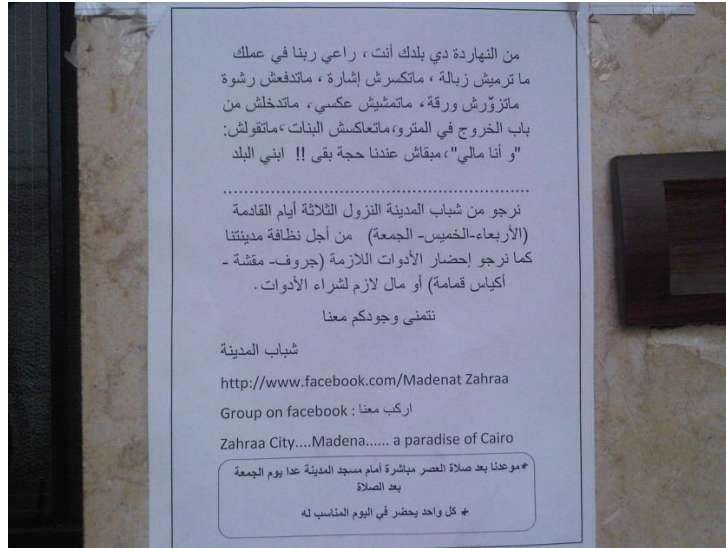 من النهاردة دي بلدك أنت ، راعي ربنا في عملك
ما ترميش زبالة ، ماتكسرش إشارة ، ماتدفعش رشوة
ماتزوّرش ورقة، ماتمشيش عكسي، ماتدخلش من
باب الخروج في المترو،ماتعاكسش البنات ،ماتقولش:
"و أنا مالي"،مبقاش عندنا حجة بقى !! ابني البلد
......................................................
نرجو من شباب المدينة النزول الثلاثة أيام القادمة
(الأربعاء-الخميس- الجمعة) من أجل نظافة مدينتنا
كما نرجو إحضار الأدوات اللازمة (جروف- مقشة -
أكياس قمامة) أو مال لازم لشراء الأدوات .
نتمنى وجودكم معنا
شباب المدينة
http://www.facebook.com/Madenat Zahraa
Group on facebook : اركب معنا
Zahraa City....Madena...... a paradise of Cairo
*موعدنا بعد صلاة العصر مباشرة أمام مسجد المدينة عدا يوم الجمعة
بعد الصلاة
* كل واحد يحضر في اليوم المناسب له